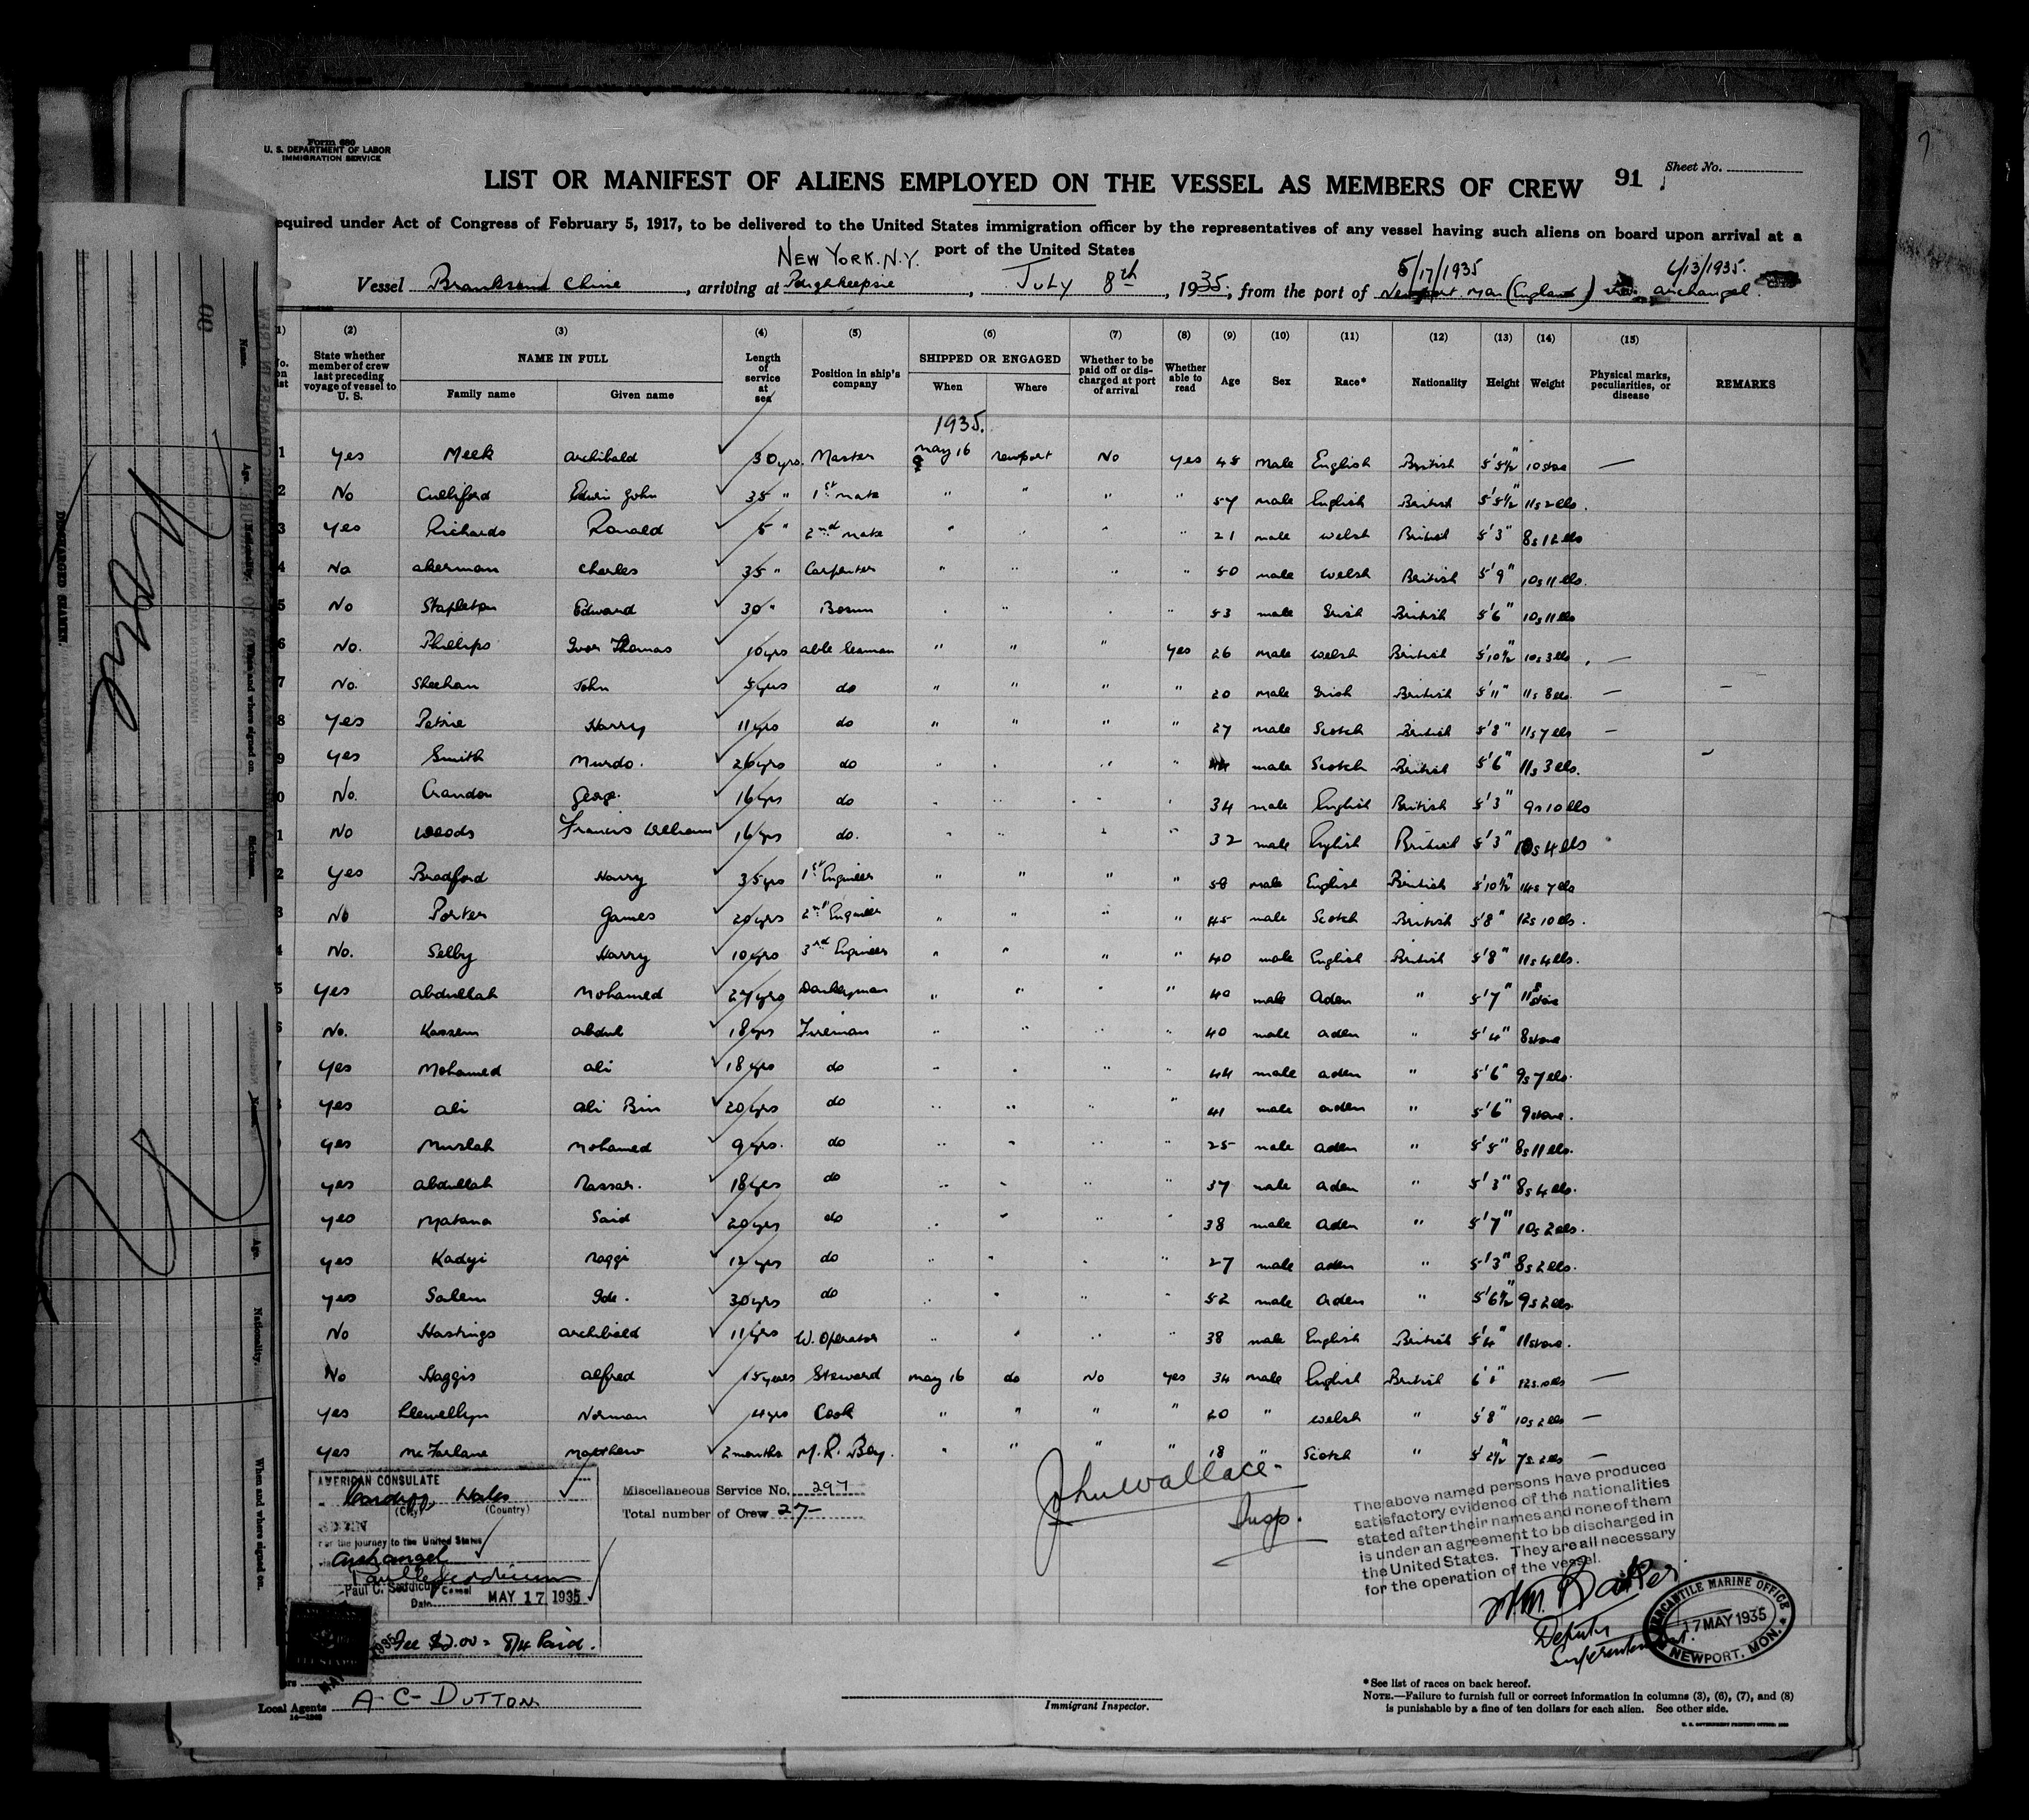 Form 680
U. S. DEPARTMENT OF LABOR
IMMIGRATION SERVICE
LIST OR MANIFEST OF ALIENS EMPLOYED ON THE VESSEL AS MEMBERS OF CREW 91 Sheet No.
equired under Act of Congress of February 5, 1917, to be delivered to the United States immigration officer by the representatives of any vessel having such aliens on board upon arrival at a
port of the United States
NEW YORK. N.Y. 5/17/1935 6/13/1935.
Vessel Branksome Chine, arriving at Poughkeepsie, July 8th, 1935, from the port of Newport Mon (England) Archangel.
(2) (3) (4) (5) (6) (7) (8) (9) (10) (11) (12) (13) (14) (15)
State whether member of crew last preceding voyage of vessel to U. S. NAME IN FULL Family name Given name Length of service at sea Position in ship's company SHIPPED OR ENGAGED When Where Whether to be paid off or discharged at port of arrival Whether able to read Age Sex Race* Nationality Height Weight Physical marks, peculiarities, or disease REMARKS
1935.
1 Yes Meek Archibald 30 yrs. Master May 16 Newport No Yes 48 Male English British 5'5½" 10 stone —
2 No Culliford Edwin John 35 " 1st mate " " " " 57 male English British 5'5½" 11s 2lbs.
3 Yes Richards Ronald 5 " 2nd mate " " " " 21 male Welsh British 5'3" 8s 12lbs
4 No Akerman Charles 35 " Carpenter " " " " 50 male Welsh British 5'9" 10s 11lbs.
5 No Stapleton Edward 30 " Bosun " " " " 53 male Irish British 5'6" 10s 11lbs
6 No. Phillips Ivor Thomas 10 yrs able seaman " " " yes 26 male Welsh British 5'10½" 10s 3lbs —
7 No. Sheehan John 5 yrs do " " " " 20 male Irish British 5'11" 11s 8lbs. —
8 Yes Petrie Harry 11 yrs do " " " " 27 male Scotch British 5'8" 11s 7lbs —
9 Yes Smith Murdo. 26 yrs do " " " " 44 male Scotch British 5'6" 11s 3lbs.
0 No. Crandon George. 16 yrs do " " " " 34 male English British 5'3" 9s 10lbs
1 No Woods Francis William 16 yrs do. " " " " 32 male English British 5'3" 10s 4lbs
2 Yes Bradford Harry 35 yrs 1st Engineer " " " " 58 male English British 5'10½" 14s 7lbs
3 No Porter James 20 yrs 2nd Engineer " " " " 45 male Scotch British 5'8" 12s 10lbs.
4 No. Selby Harry 10 yrs 3rd Engineer " " " " 40 male English British 5'8" 11s 4lbs.
5 Yes Abdullah Mohamed 27 yrs Donkeyman " " " " 40 male Aden " 5'7" 11 stone
6 No. Kassem Abdul 18 yrs Fireman " " " " 40 male Aden " 5'4" 8 stone
7 Yes Mohamed Ali 18 yrs do " " " " 44 male Aden " 5'6" 9s 7lbs.
Yes Ali Ali Bin 20 yrs do " " " " 41 male Aden " 5'6" 9 stone.
Yes Muslah Mohamed 9 yrs. do " " " " 25 male Aden " 5'5" 8s 11lbs.
yes Abdullah Nassar. 18 yrs do " " " " 37 male Aden " 5'3" 8s 4lbs.
yes Matana Said 20 yrs do " " " " 38 male Aden " 5'7" 10s 2lbs.
yes Kadyi Naggi 12 yrs do " " " " 27 male Aden " 5'3" 8s 2lbs.
yes Salem 30 yrs do " " " " 52 male Aden " 5'6½" 9s 2lbs.
No Hastings Archibald 11 yrs W. Operator " " " " 38 male English British 5'4" 11 stone.
No Haggis Alfred 15 years Steward May 16 do No Yes 34 male English British 6'1" —
Yes Llewellyn Norman 4 yrs Cook " " " " 20 " Welsh " 5'8" 10s 2lbs —
Yes McFarlane Matthew 2 months M. R. Boy. " " " " 18 " Scotch " 5'2½" 7s 2lbs —
AMERICAN CONSULATE
Cardiff, Wales
(City) (Country)
SEEN
For the journey to the United States
via Archangel
Paul C. Consul
Date MAY 17 1935
Fee $2.00 = 8/4 Paid.
Miscellaneous Service No. 297
Total number of Crew 27
John Wallace
Insp.
The above named persons have produced
satisfactory evidence of the nationalities
stated after their names and none of them
is under an agreement to be discharged in
the United States. They are all necessary
for the operation of the vessel.
Deputy
Superintendent.
MERCANTILE MARINE OFFICE
17 MAY 1935
NEWPORT, MON.
Local Agents A. C. DUTTON
Immigrant Inspector.
*See list of races on back hereof.
NOTE.—Failure to furnish full or correct information in columns (3), (6), (7), and (8)
is punishable by a fine of ten dollars for each alien. See other side.
U. S. GOVERNMENT PRINTING OFFICE
DISCHARGED SEAMEN.
Name. Age. Nationality. When and where signed on. Sickness.
Name. Age. Nationality. When and where signed on.